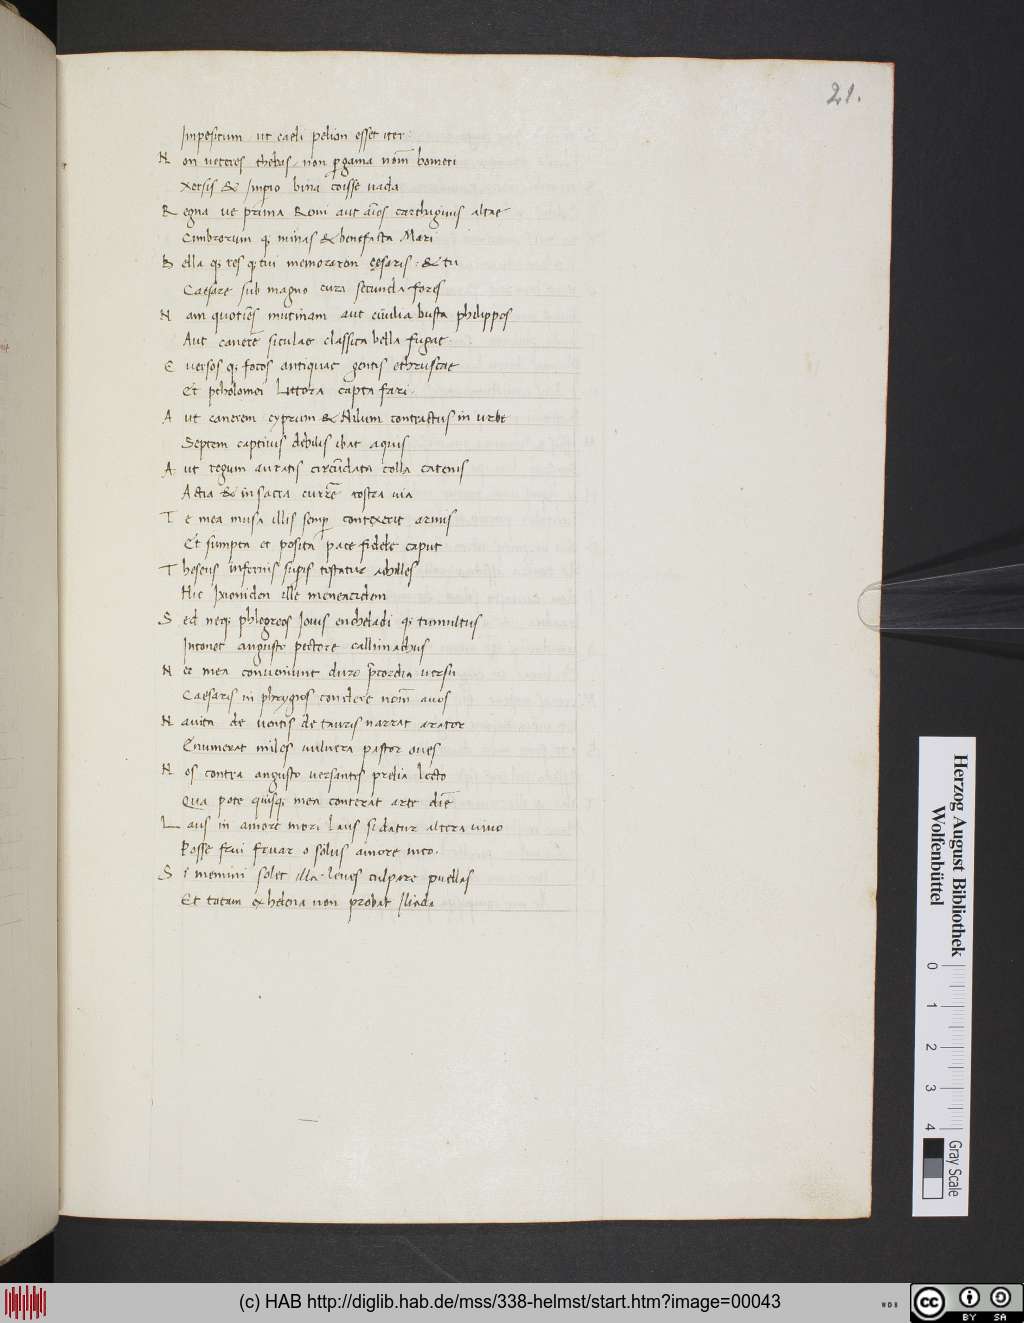 21.
Impositum ut caeli pelion esset iter.
Non veteres thebas, non pgama nom̄ homeri
Xersis & Impio bina coisse vada
Regna ve prima Remi aut aīos carthaginis altae
Cimbrorum q; minas & benefacta Mari
Bella q; res q; tui memorarem cęsaris: & tu
Caesare sub magno cura secunda fores
Nam quotiēs mutinam aut civilia busta philippos
Aut canerē siculae classica bella fugae
Eversos q; focos antiquae gentis ethruscae
Et ptholomei littora capta fari.
Aut canerem cyprum & Nilum contractus in urbe
Septem captivis debilis ibat aquis
Aut regum auratis circūdata colla catenis
Actia & in sacra currē rostra via
Te mea musa illis semp contexerit armis
Et sumpta et posita pace fidele caput
Theseus infernis supis testatur achilles
Hic Ixioniden ille menoeciden
Sed neq; phlegreos Iovis encheladi q; tumultus
Intonet angusto pectore callimachus
Nec mea conveniunt duro p̄cordia versu
Caesaris in phrygios condere nom̄ avos
Navita de ventis de tauris narrat arator
Enumerat miles vulnera pastor oves
Nos contra angusto versantes prelia lecto
Qua pote quisq; mea conterat arte diē
Laus in amore mori laus si datur altera vivo
Posse frui fruar o solus amore meo.
Si memini solet illa leves culpare puellas
Et totam ex helena non probat Iliada
Herzog August Bibliothek
Wolfenbüttel
0 1 2 3 4
Gray Scale
(c) HAB http://diglib.hab.de/mss/338-helmst/start.htm?image=00043
WDB
cc BY SA